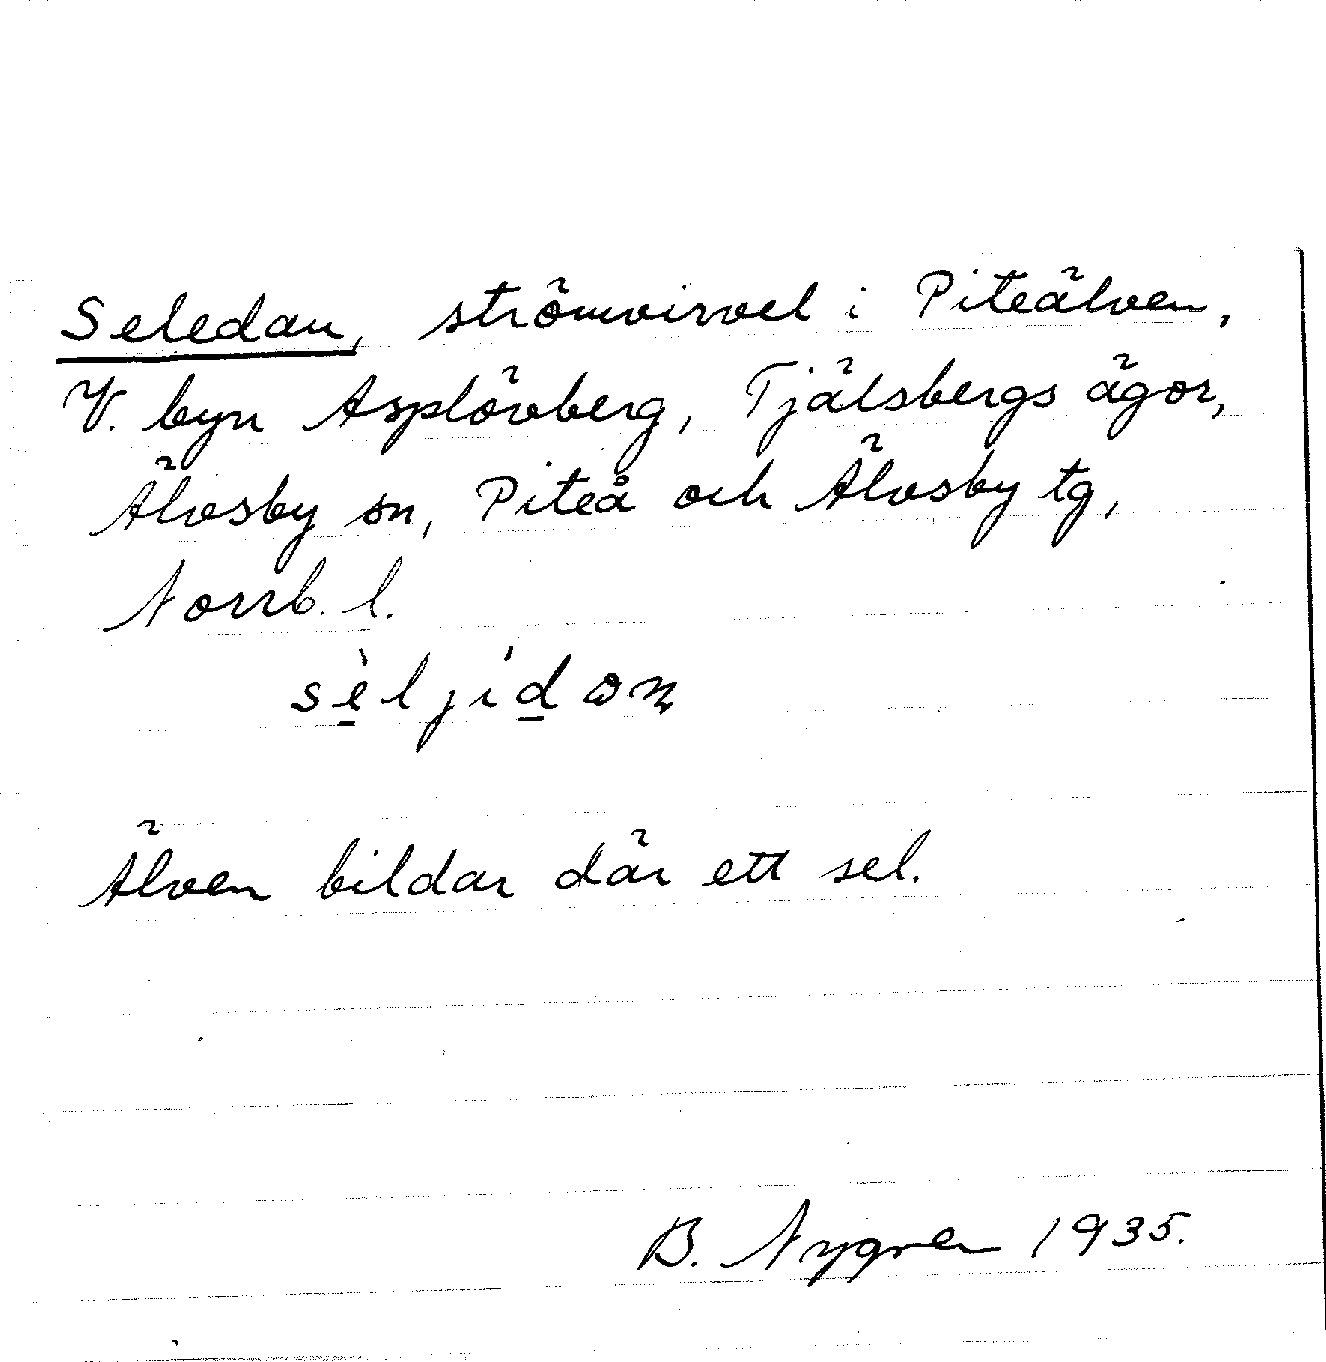 Seledan, strömvirvel i Piteälven,
V. byn Asplövberg, Tjälsbergs ägor,
Älvsby sn, Piteå och Älvsby tg,
Norrb. l.
sèljidon
Älven bildar där ett sel.
B. Nygren 1935.